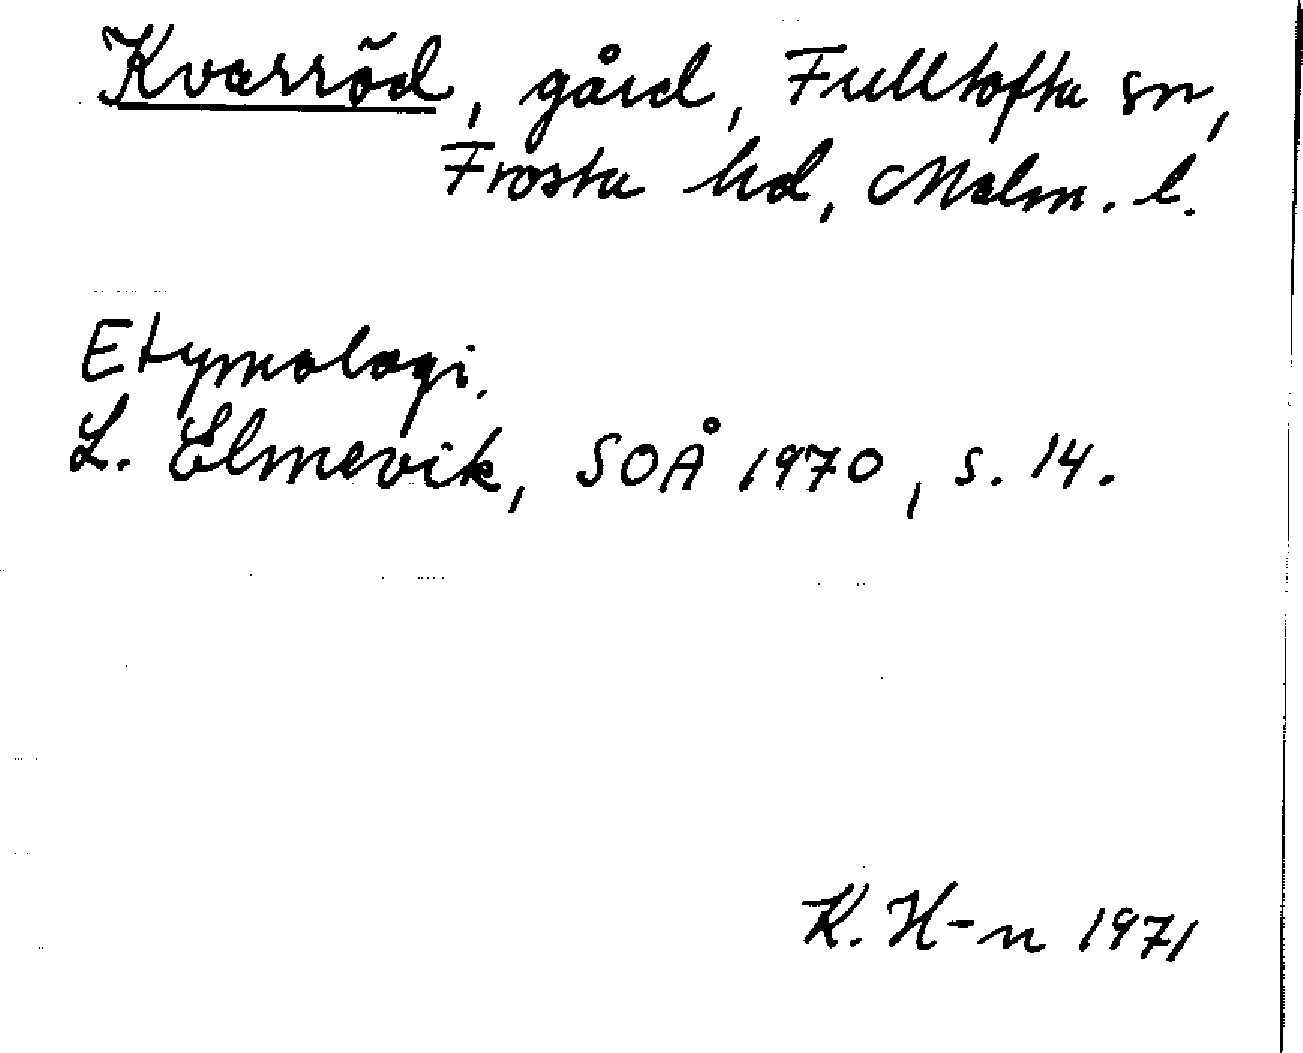 Kvarröd, gård, Fulltofta sn,
Frosta hd, Malm. l.
Etymologi.
L. Elmevik, SOÅ 1970, s. 14.
K. H-n 1971